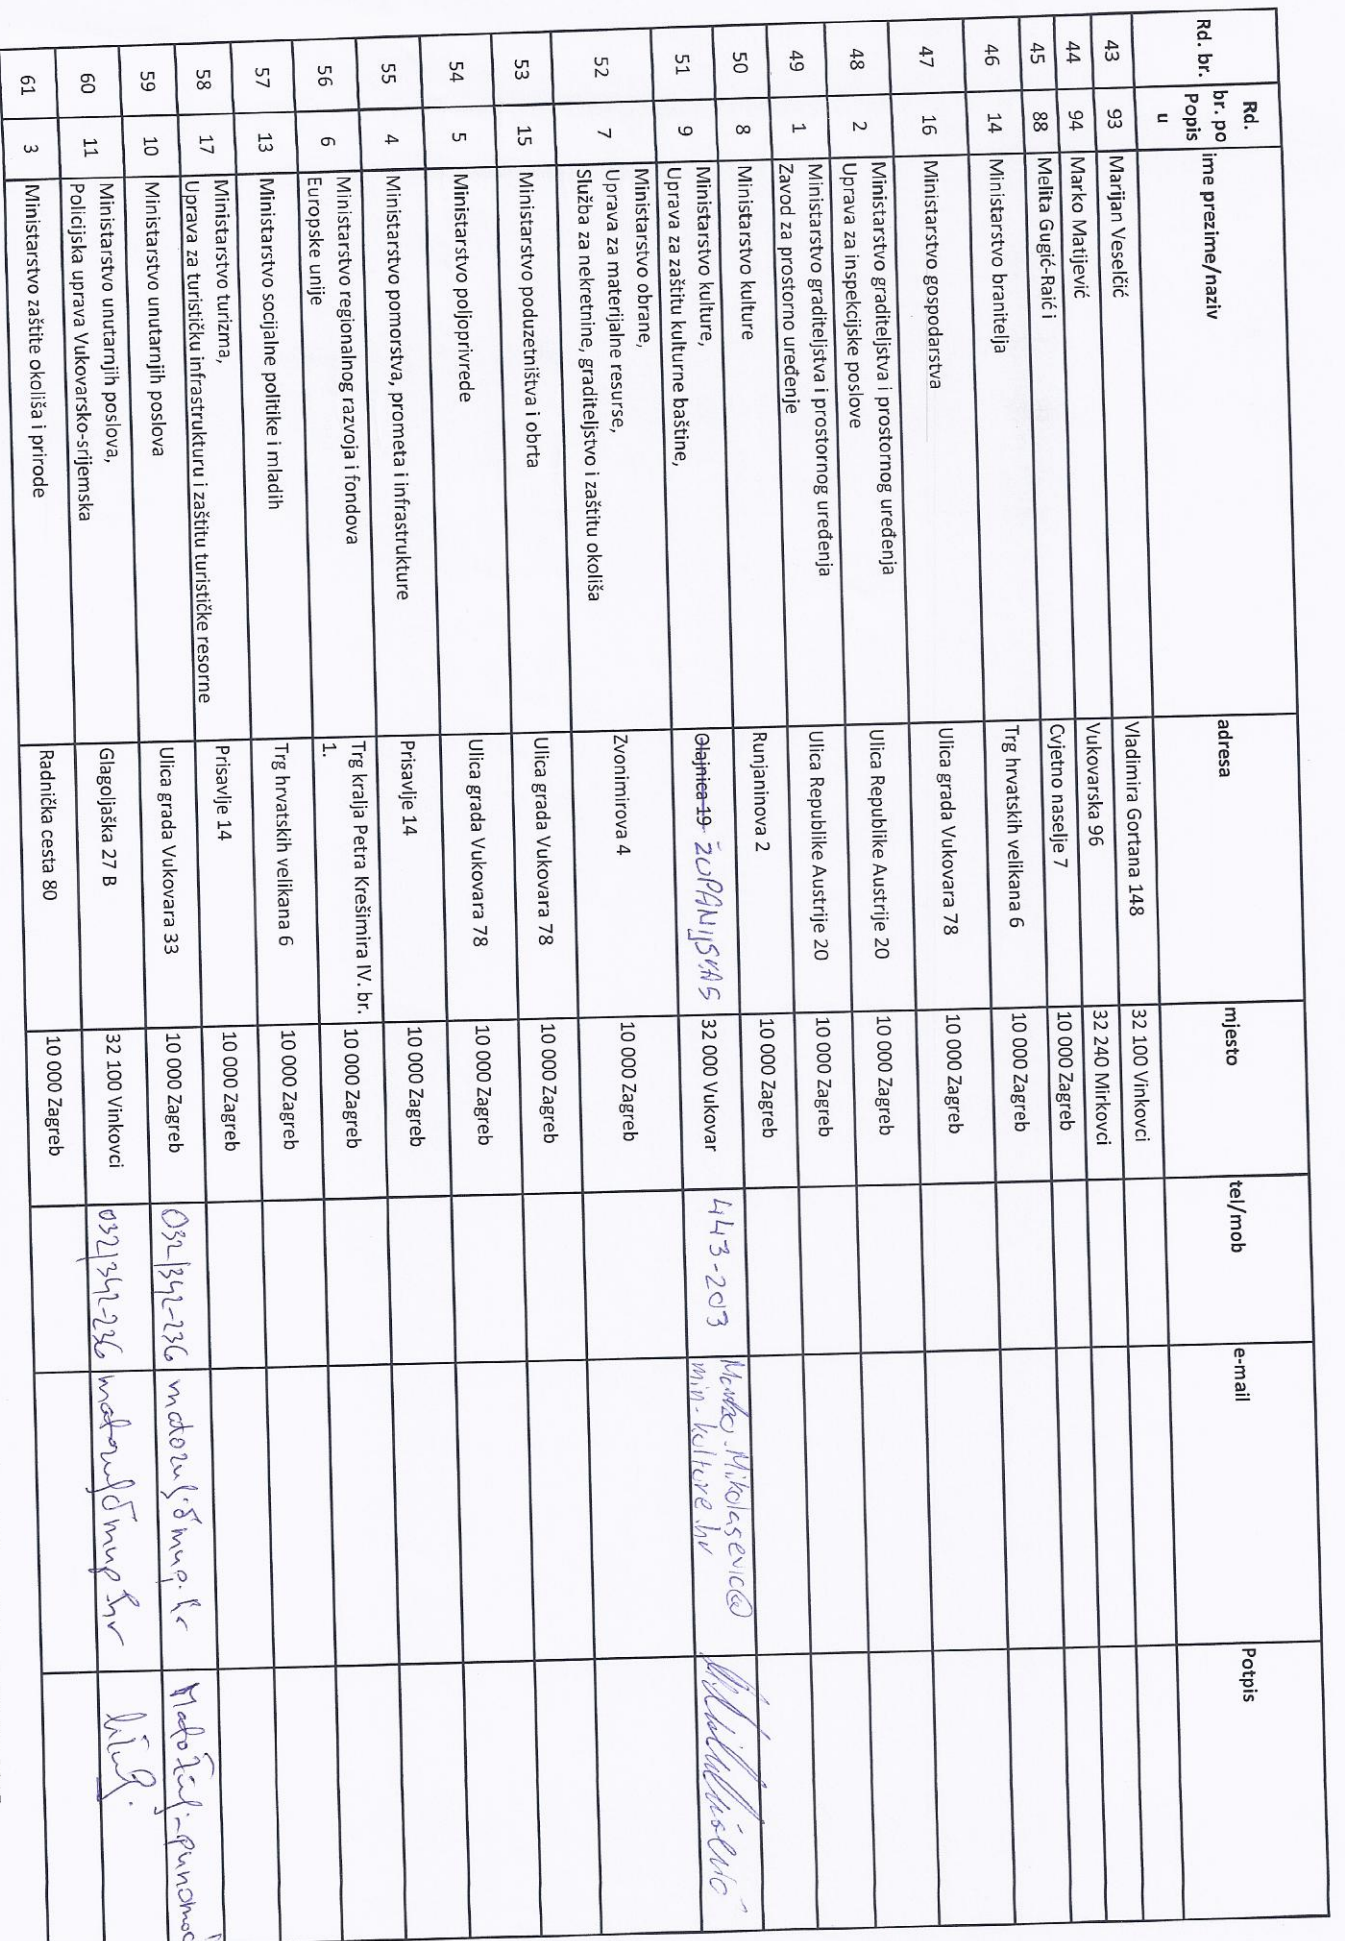 Rd. br. Rd. br. po Popisu ime prezime/naziv adresa mjesto tel/mob e-mail Potpis
43 93 Marijan Veselčić Vladimira Gortana 148 32 100 Vinkovci
44 94 Marko Matijević Vukovarska 96 32 240 Mirkovci
45 88 Melita Gugić-Raić i Cvjetno naselje 7 10 000 Zagreb
46 14 Ministarstvo branitelja Trg hrvatskih velikana 6 10 000 Zagreb
47 16 Ministarstvo gospodarstva Ulica grada Vukovara 78 10 000 Zagreb
48 2 Ministarstvo graditeljstva i prostornog uređenja
Uprava za inspekcijske poslove Ulica Republike Austrije 20 10 000 Zagreb
49 1 Ministarstvo graditeljstva i prostornog uređenja
Zavod za prostorno uređenje Ulica Republike Austrije 20 10 000 Zagreb
50 8 Ministarstvo kulture Runjaninova 2 10 000 Zagreb
51 9 Ministarstvo kulture,
Uprava za zaštitu kulturne baštine, Olajnica 19 ŽUPANIJSKA 5 32 000 Vukovar 443-203 Mikolasevic@
min-kulture.hr
52 7 Ministarstvo obrane,
Uprava za materijalne resurse,
Služba za nekretnine, graditeljstvo i zaštitu okoliša Zvonimirova 4 10 000 Zagreb
53 15 Ministarstvo poduzetništva i obrta Ulica grada Vukovara 78 10 000 Zagreb
54 5 Ministarstvo poljoprivrede Ulica grada Vukovara 78 10 000 Zagreb
55 4 Ministarstvo pomorstva, prometa i infrastrukture Prisavlje 14 10 000 Zagreb
56 6 Ministarstvo regionalnog razvoja i fondova
Europske unije Trg kralja Petra Krešimira IV. br.
1. 10 000 Zagreb
57 13 Ministarstvo socijalne politike i mladih Trg hrvatskih velikana 6 10 000 Zagreb
58 17 Ministarstvo turizma,
Uprava za turističku infrastrukturu i zaštitu turističke resorne Prisavlje 14 10 000 Zagreb
59 10 Ministarstvo unutarnjih poslova Ulica grada Vukovara 33 10 000 Zagreb 032/342-236
60 11 Ministarstvo unutarnjih poslova,
Policijska uprava Vukovarsko-srijemska Glagoljaška 27 B 32 100 Vinkovci 032/342-236
61 3 Ministarstvo zaštite okoliša i prirode Radnička cesta 80 10 000 Zagreb